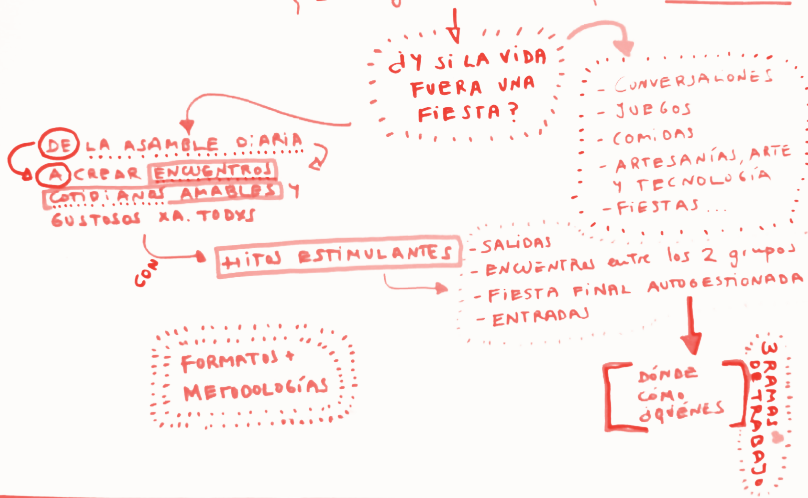 ¿Y SI LA VIDA
FUERA UNA
FIESTA?
- CONVERSALONES
- JUEGOS
- COMIDAS
- ARTESANÍAS, ARTE
Y TECNOLOGÍA
- FIESTAS...
DE LA ASAMBLE DIARIA
A CREAR ENCUENTROS
COTIDIANOS AMABLES Y
GUSTOSOS XA. TODXS
CON
HITOS ESTIMULANTES
- SALIDAS
- ENCUENTROS entre los 2 grupos
- FIESTA FINAL AUTOGESTIONADA
- ENTRADAS
FORMATOS +
METODOLOGÍAS
DÓNDE
CÓMO
¿QUÉNES
3 RAMAS
DE TRABAJO